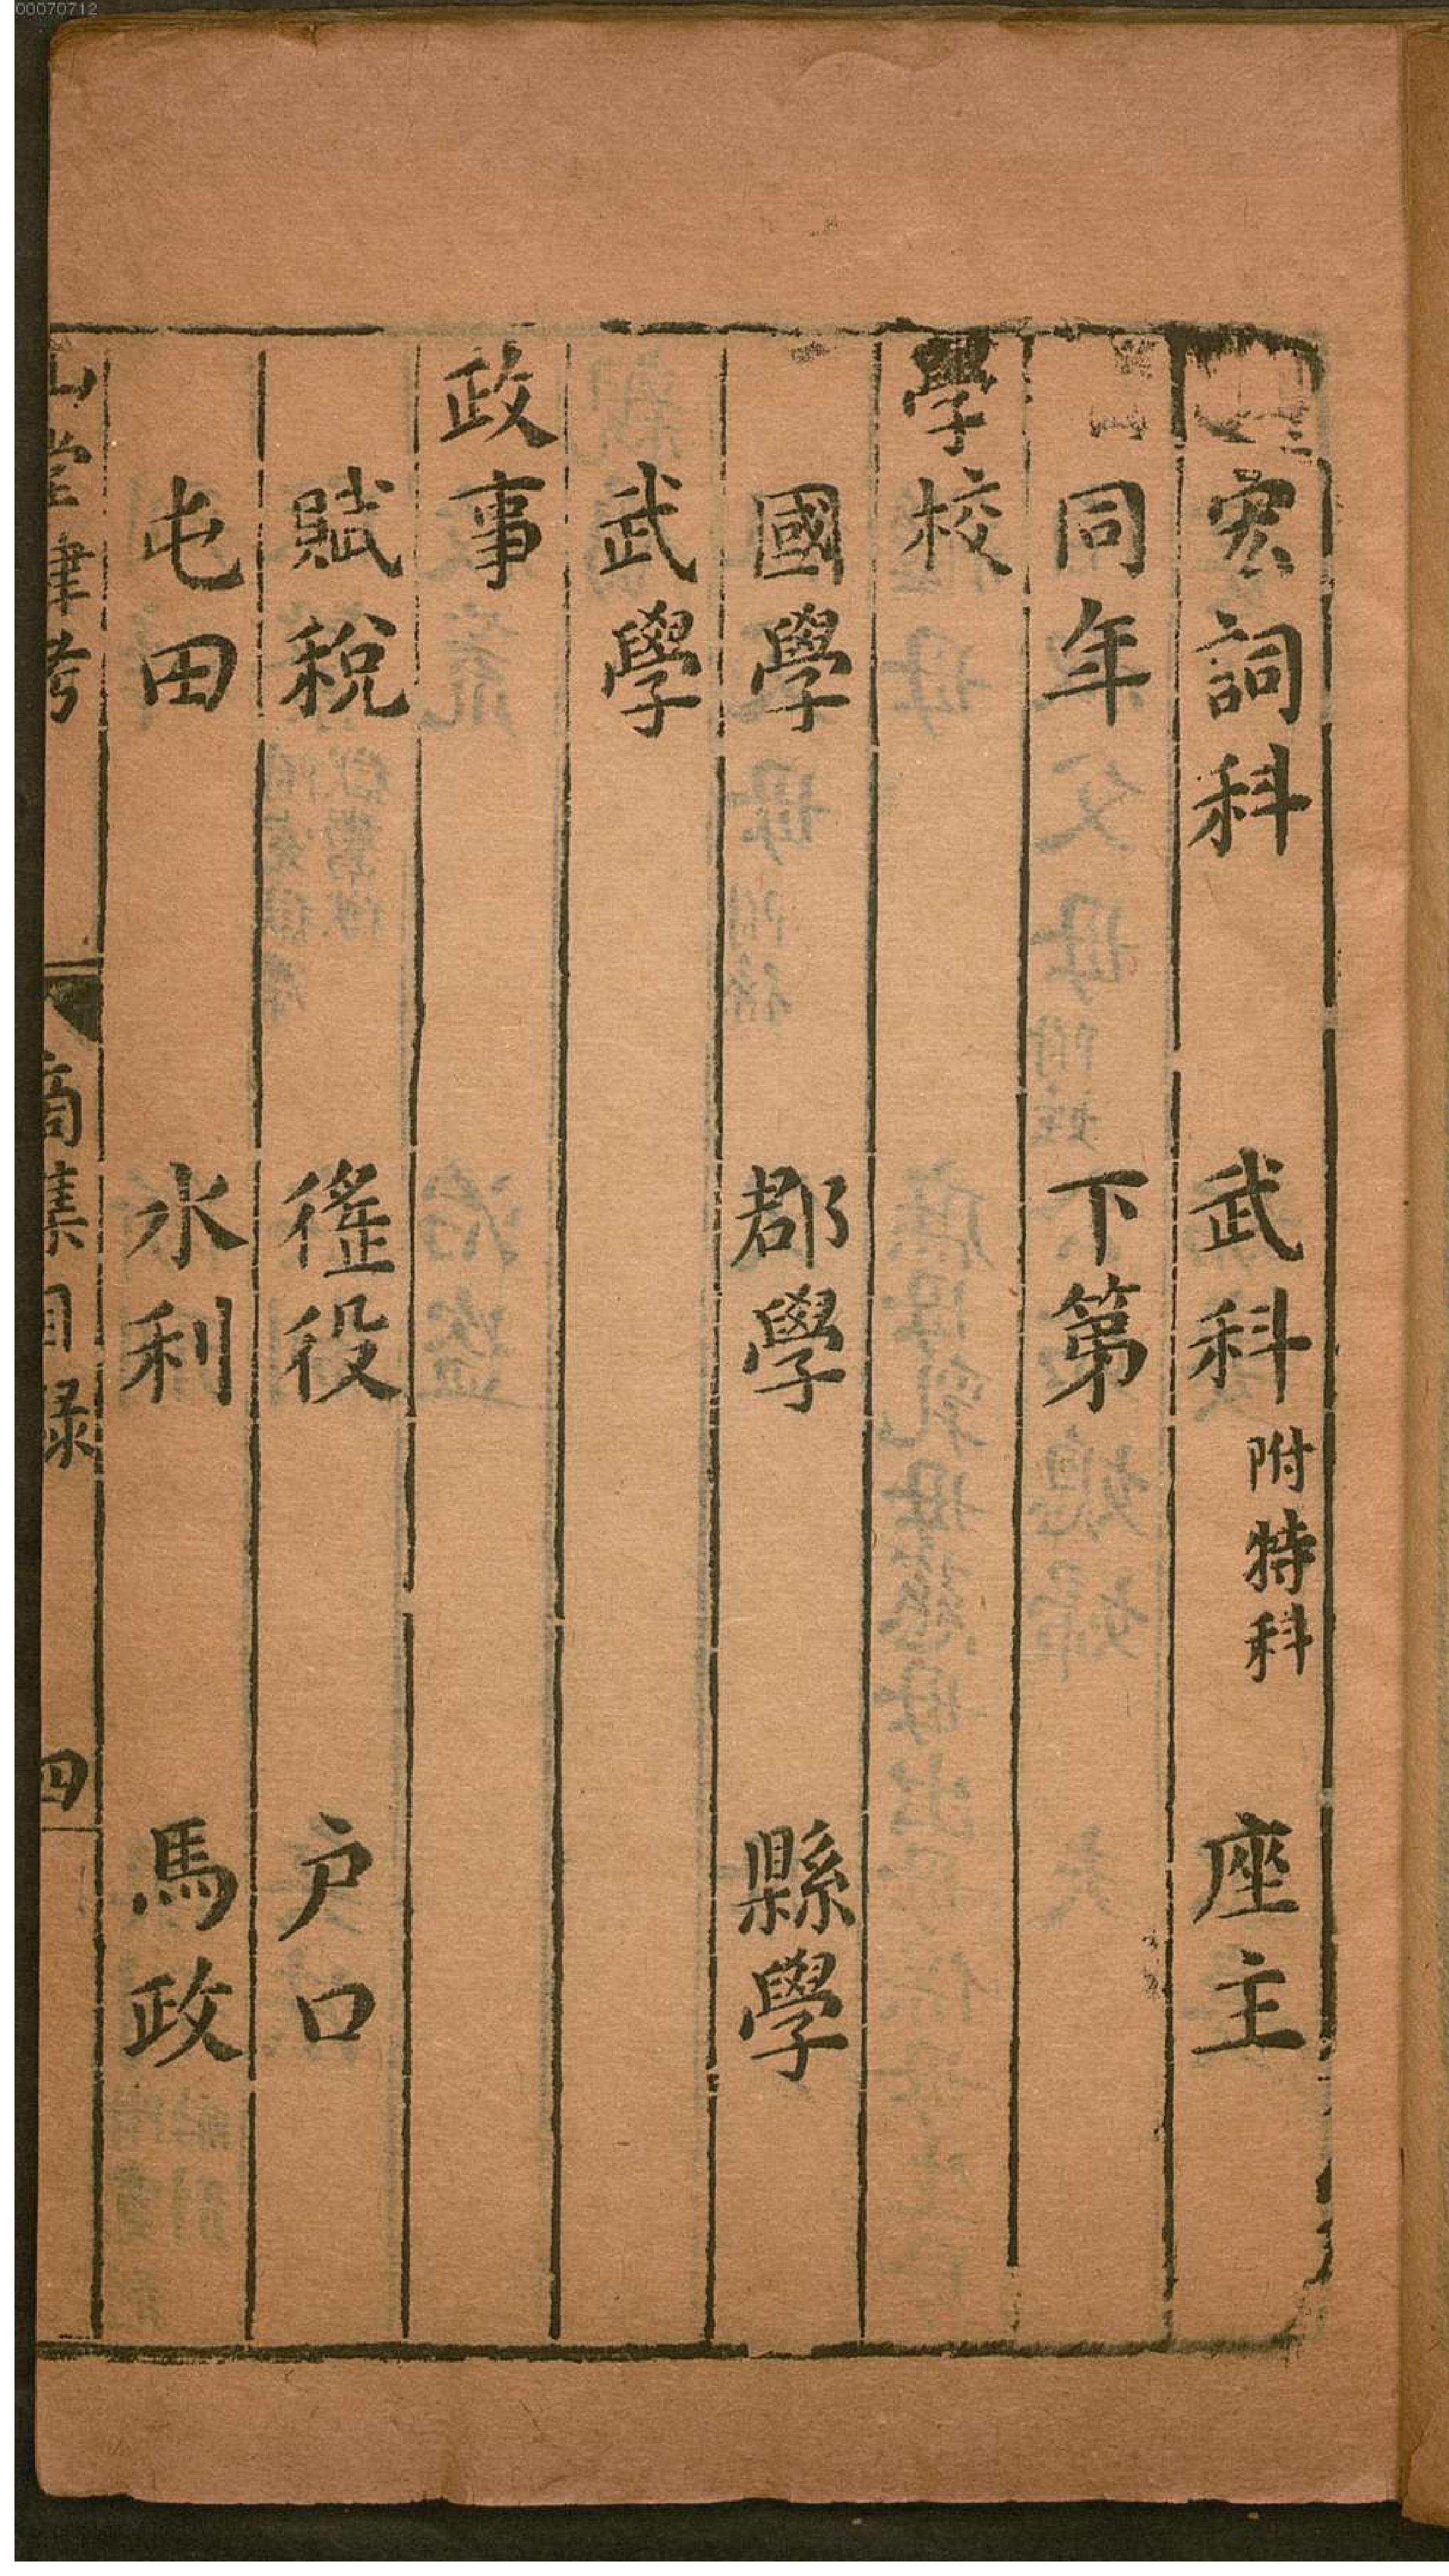 00070712
宏詞科 武科附特科 座主
同年 下第
學校
國學 郡學 縣學
武學
政事
賦稅 徭役 户口
屯田 水利 馬政
山堂肆考 商集目録 四